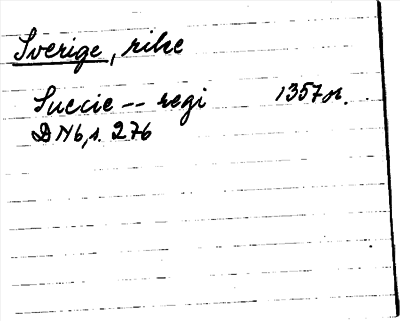 Sverige, rike
Suecie -- regi 1357 or.
DN 6, s. 276